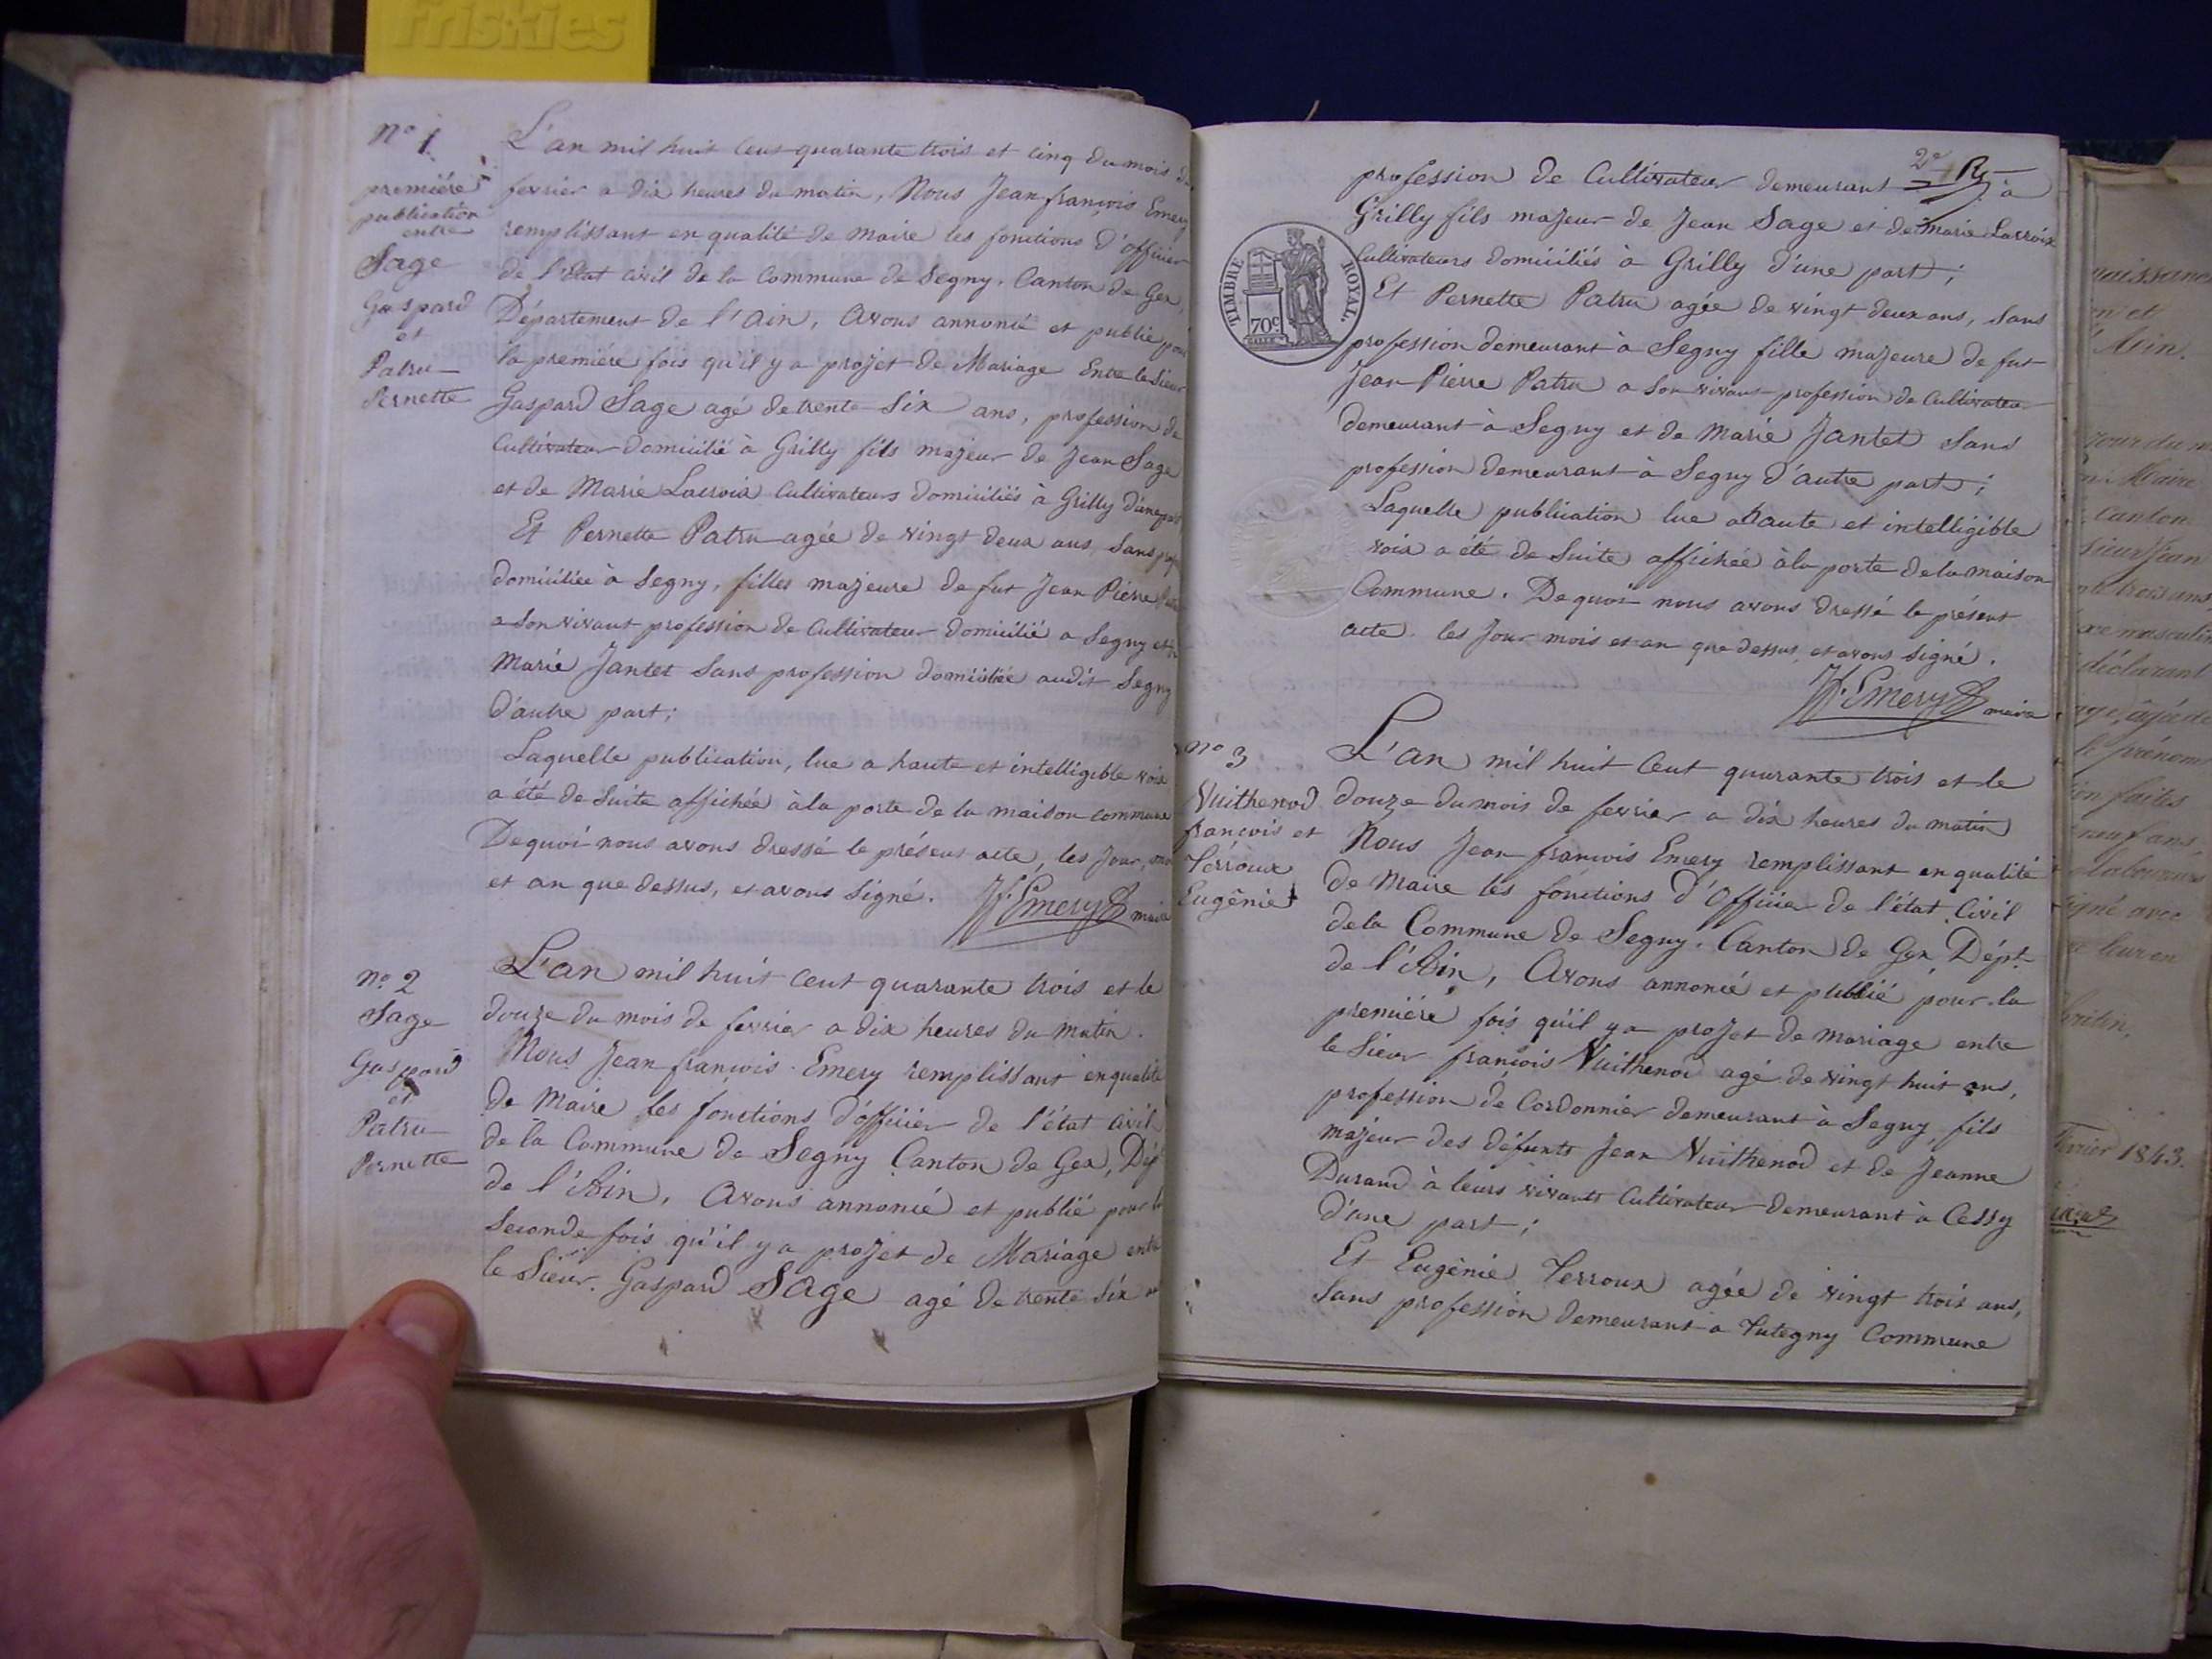 Friskies
N° 1
première
publication
entre
Sage
Gaspard
et
Patru
Pernette
L'an mil huit cent quarante trois et cinq du mois de
fevrier a dix heures du matin, Nous Jean françois Emery
remplissant en qualité de Maire les fonctions d'officier
de l'Etat civil de la Commune de Segny, Canton de Gex,
Département de l'Ain, Avons annoncé et publié pour
la première fois qu'il y a projet de Mariage Entre le Sieur
Gaspard Sage agé de trente Six ans, profession de
Cultivateur domicilié à Grilly fils majeur de Jean Sage
et de Marie Lacroix Cultivateurs domiciliés à Grilly d'une part
Et Pernette Patru agée de vingt deux ans, Sans
domiciliée à Segny, filles majeure de fut Jean Pierre
a son vivant profession de Cultivateur domicilié a Segny et
Marie Jantet Sans profession domiciliée audit Segny
d'autre part;
Laquelle publication, lue a haute et intelligible voix
a été de Suite affichée à la porte de la maison commune
De quoi nous avons dressé le présent acte, les Jour,
et an que dessus, et avons Signé.
Jf. Emery maire
n° 2
Sage
Gaspard
et
Patru
Pernette
L'an mil huit cent quarante trois et le
douze du mois de fevrier a dix heures du matin.
Nous Jean françois Emery remplissant en qualité
de Maire les fonctions d'officier de l'état civil
de la Commune de Segny Canton de Gex, Dép
de l'Ain, Avons annoncé et publié pour la
Seconde fois qu'il y a projet de Mariage entre
le Sieur Gaspard Sage agé de trente Six
2e
profession de Cultivateur demeurant à
Grilly fils majeur de Jean Sage et de marie Lacroix
Cultivateurs domiciliés à Grilly d'une part;
TIMBRE ROYAL.
70c
Et Pernette Patru agée de vingt deux ans, Sans
profession demeurant à Segny fille majeure de fut
Jean Pierre Patru a Son vivant profession de Cultivateur
demeurant à Segny et de Marie Jantet Sans
profession demeurant à Segny d'autre part;
Laquelle publication lue a haute et intelligible
voix a été de Suite affichée à la porte de la maison
Commune. De quoi nous avons dressé le présent
acte les Jour mois et an que dessus, et avons Signé.
Jf. Emery maire
n° 3
Vuithenod
françois et
Terroux
Eugénie
L'an mil huit Cent quarante trois et le
douze du mois de fevrier a dix heures du matin
Nous Jean francois Emery remplissant en qualité
de Maire les fonctions d'Officier de l'état Civil
de la Commune de Segny. Canton de Gex Dépt.
de l'Ain, Avons annoncé et publié pour la
première fois qu'il y a projet de mariage entre
le Sieur françois Vuithenod agé de vingt huit ans,
profession de Cordonnier demeurant à Segny, fils
majeur des défunts Jean Vuithenod et de Jeanne
Durand à leurs vivants Cultivateur demeurant à Cessy
d'une part;
Et Eugénie Terroux agée de vingt trois ans,
Sans profession demeurant a Tutegny Commune
Ain.
Maire
canton
trois ans
masculin
déclarant
prénom
faites
neuf ans,
avec
février 1843.